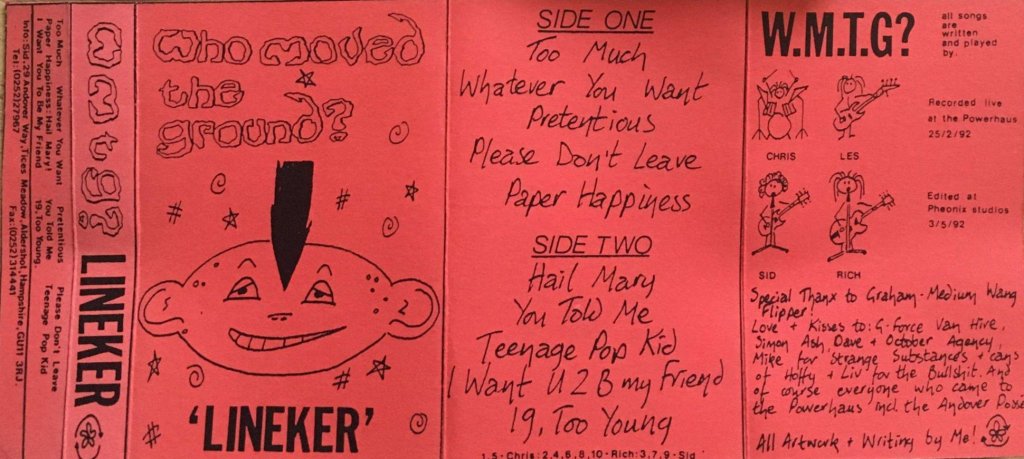 Too Much Whatever You Want Pretentious Please Don't Leave
Paper Happiness: Hail Mary! You Told Me Teenage Pop Kid
I Want You To Be My Friend 19, Too Young.
Info: Sid: 29 Andover Way, Tices Meadow, Aldershot, Hampshire, GU11 3RJ.
Tel: (0252) 27967 Fax: (0252) 314441
wmtg? LINEKER
who moved
the
ground?
'LINEKER'
SIDE ONE
Too Much
Whatever You Want
Pretentious
Please Don't Leave
Paper Happiness
SIDE TWO
Hail Mary
You Told Me
Teenage Pop Kid
I Want U 2 B my Friend
19, Too Young
1,5-Chris: 2,4,6,8,10-Rich: 3,7,9-Sid
W.M.T.G?
all songs
are
written
and played
by.
CHRIS
LES
SID
RICH
Recorded live
at the Powerhaus
25/2/92
Edited at
Pheonix studios
3/5/92
Special Thanx to Graham-Medium Wang
Flipper!
Love + Kisses to: G-Force Van Hire,
Simon Ash, Dave + October Agency,
Mike for Strange Substances + cans
of Hoffy + Liv for the Bullshit. And
of course everyone who came to
the Powerhaus incl. the Andover Posse
All Artwork + Writing by Me!